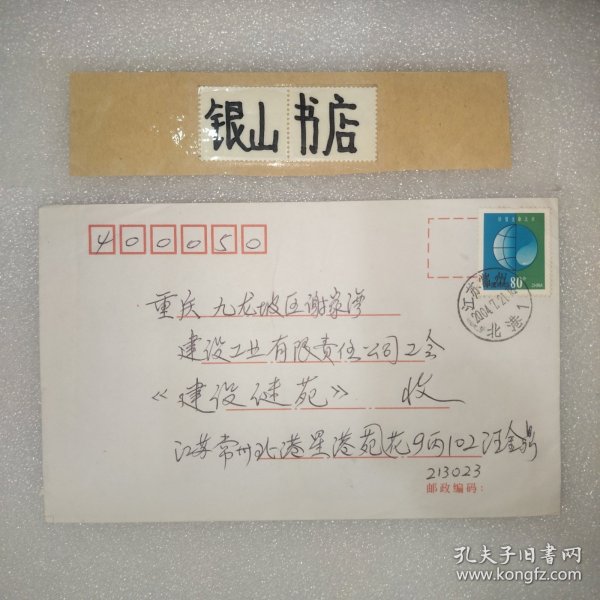 银山书店
400050
80分
CHINA
江苏常州
2004.7.21
北港
重庆九龙坡区谢家湾
建设工业有限责任公司工会
《建设谜苑》 收
江苏常州北港星港苑花9丙102汪金鼎
213023
邮政编码：
孔夫子旧书网
www.kongfz.com